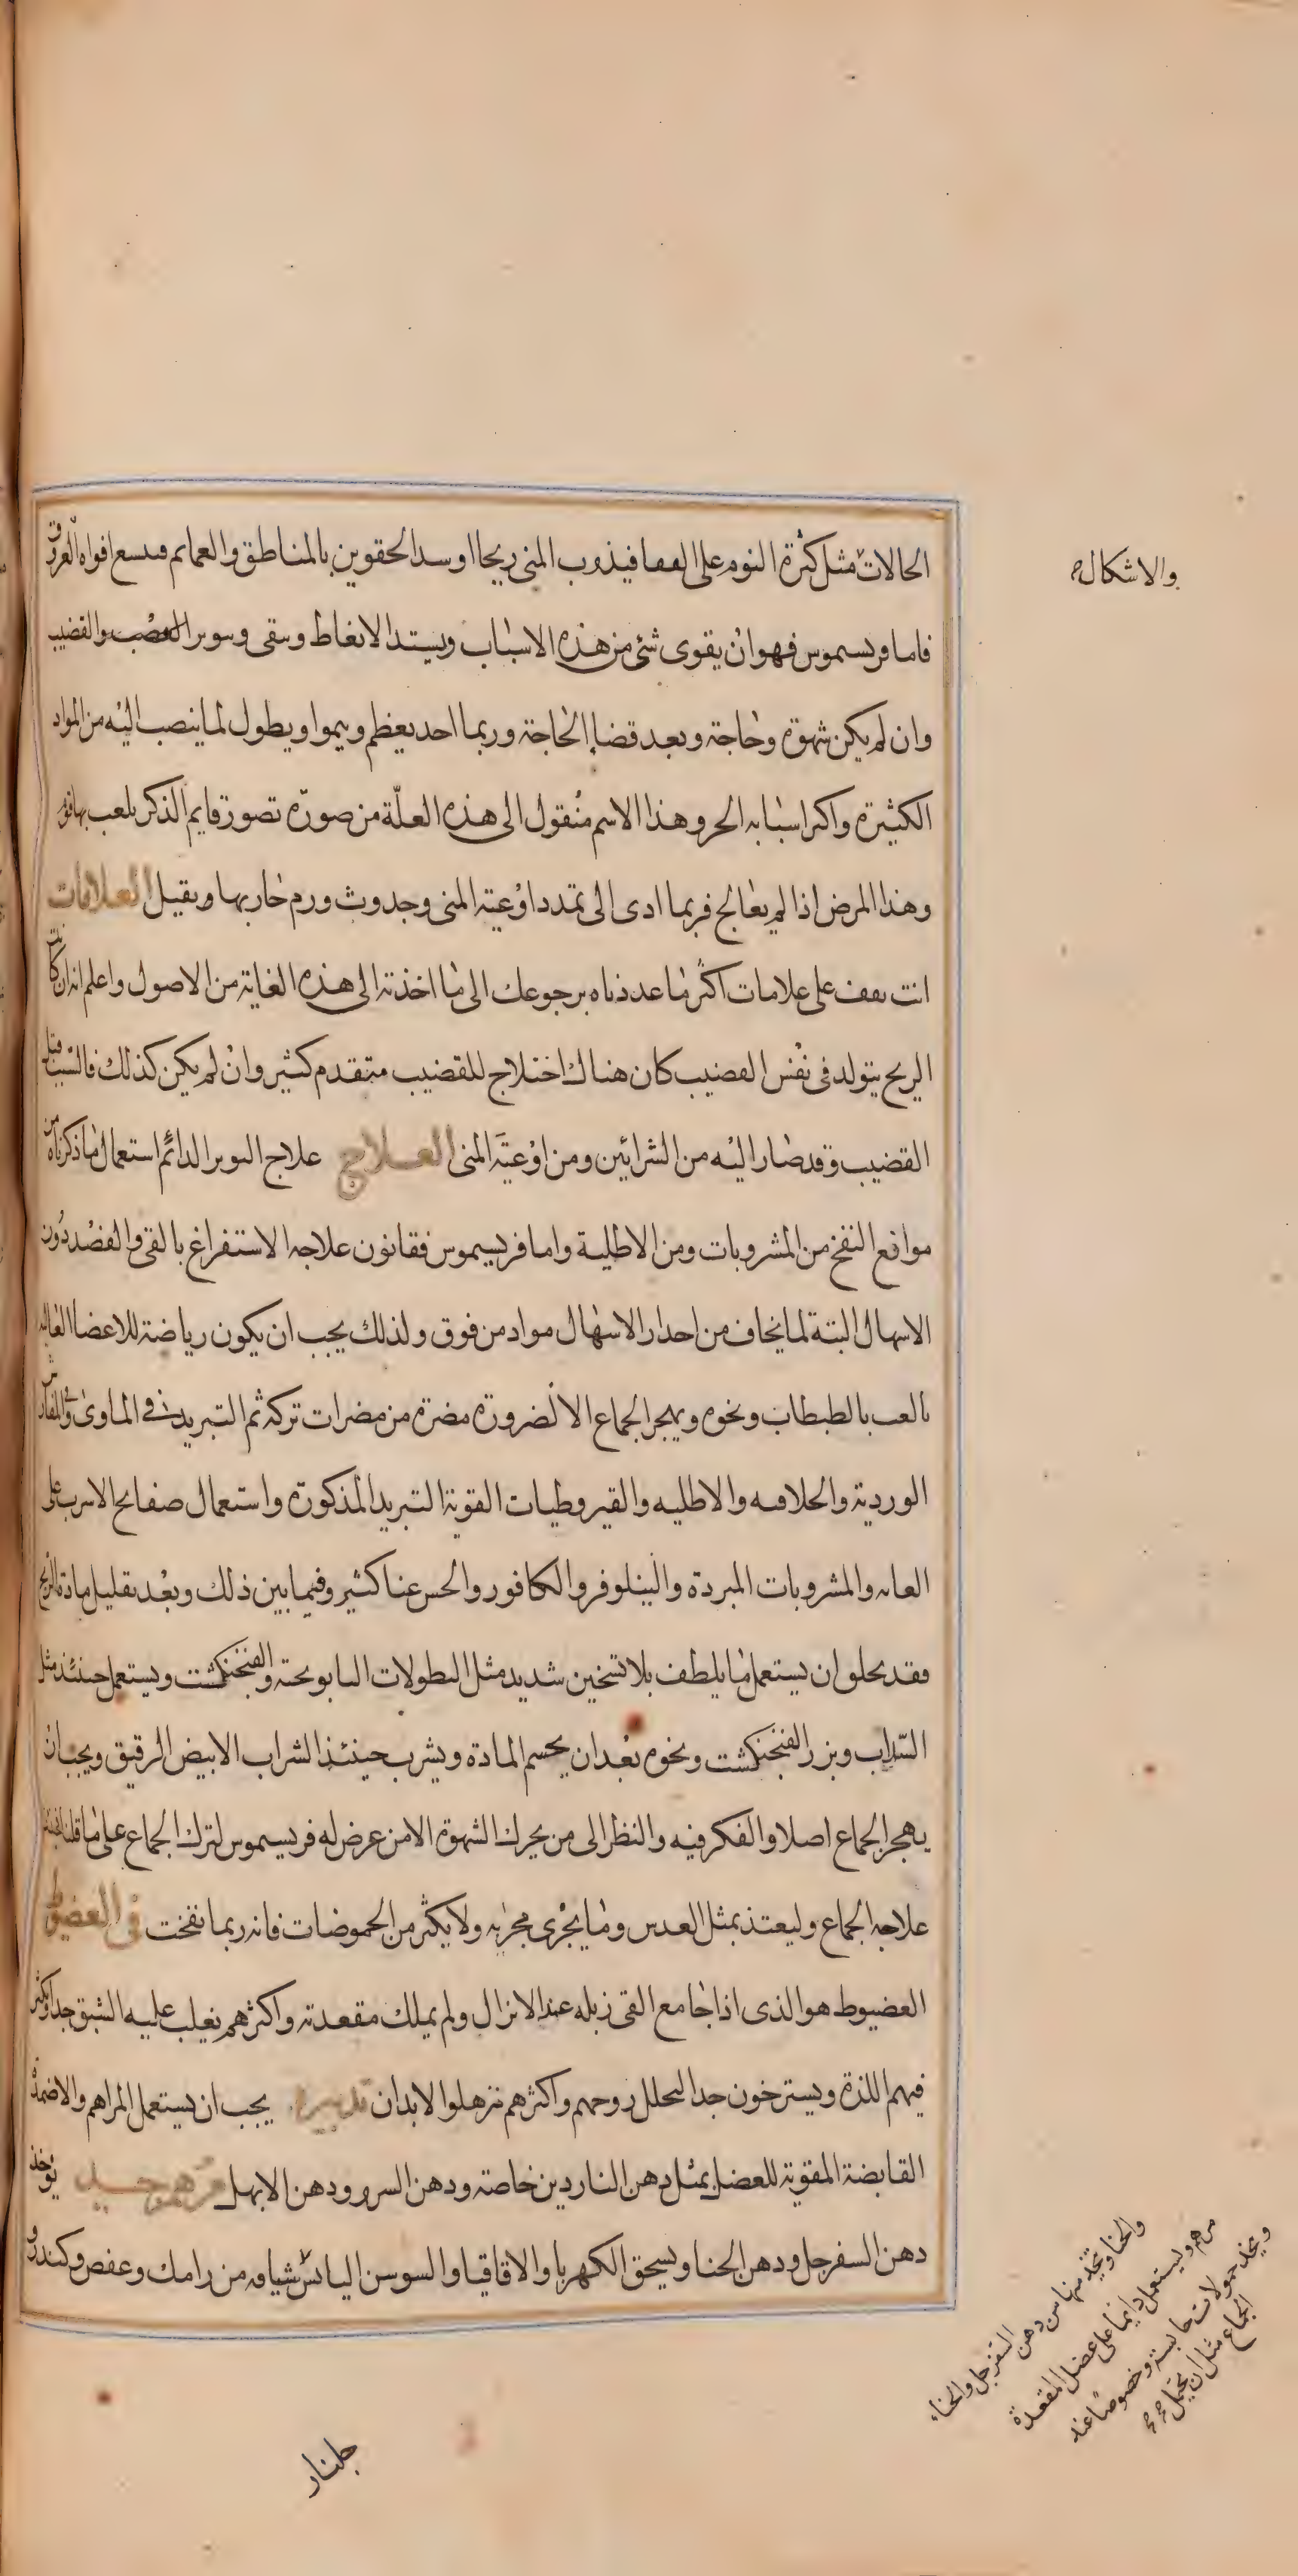 الحالات مثل كثرة النوم على القفا فيذوب المنى ريحا او سد الحقوين بالمناطق والعمايم فىسع افواه العروق
والاشكال
فاما فريسموس فهو ان يقوى شئ من هذه الاسباب ويستد الانغاط وسقى وىوىر العصب والقضيب
وان لم يكن شهوة وحاجة وبعد قضاء الحاجة وربما احد يعظم وىموا ويطول لما ينصب اليه من المواد
الكثيرة واكثر اسبابه الحر وهذا الاسم منقول الى هذه العلّة من صورة تصور قايم الذكر يلعب بها فو
وهذا المرض اذا لم يعالج فربما ادى الى تمدد اوعية المنى وحدوث ورم حار بها ويقيل العلامات
انت ىقف على علامات اكثر ما عددناه برجوعك الى ما اخذته الى هذه الغاية من الاصول واعلم انه ان كانت
الريح يتولد فى نفس القضيب كان هناك اختلاج للقضيب متقدم كثير وان لم يكن كذلك فالسبب قبل
القضيب وقد صار اليه من الشرائين ومن اوعية المنى العلاج علاج التوتر الدائم استعمال ما ذكرناه من
موافع النفخ من المشروبات ومن الاطلية واما فريسيموس فقانون علاجه الاستفراغ بالقى والفصد دون
الاسهال البتة لما يخاف من احدار الاسهال مواد من فوق ولذلك يجب ان يكون رياضة للاعضا العاليه
بالعب بالطبطاب ونحوه ويهجر الجماع الا لضرورة مضرة من مضرات تركه ثم التبريد فى الماوى وفى المفارش
الوردية والخلافيه والاطليه والقيروطيات القوية التبريد المذكورة واستعمال صفايح الاسرب على
العانه والمشروبات المبردة والنيلوفر والكافور والحس عنا كثير وفيما بين ذلك وبعد تقليل مادة الريح
فقد يحلو ان يستعمل ما يلطف بلا تسخين شديد مثل النطولات البابونجية والفنجنكشت ويستعمل حينئذ مثل
السّداب وبزر الفنجنكشت ونحوه بعد ان يحسم المادة ويشرب حينئذ الشراب الابيض الرقيق ويجب ان
يهجر الجماع اصلا والفكر فيه والنظر الى من يحرك الشهوة الا من عرض له فريسيموس لترك الجماع على ما قلنا
علاجه الجماع وليعتذ بمثل العدس وما يجرى مجريه ولا يكثر من الحموضات فانه ربما نفخت فى العضيوط
العضيوط هو الذى اذا جامع القى زبله عند الانزال ولم يملك مقعدته واكثرهم يغلب عليه الشبق جدا ويكثر
فيهم اللذة ويسترخون جدا لتحلل روحهم واكثرهم نرهلوا الابدان تدبيره يجب ان يستعمل المراهم والاضمدة
القابضة المقوية للعضل بمثل دهن الناردين خاصة ودهن السرو ودهن الابهل مرهم جيد يوخذ
دهن السفرجل ودهن الحنا ويسحق الكهربا والاقاقيا والسوسن اليابس شيافه من رامك وعفص وكندر و
والحنا ويتخذ منها من دهن السفرجل والحناء
مرهم ويستعمل دايما على عضل المقعدة
ويتخذ حمولات حابسة وخصوصا عند
الجماع مثل ان يحتمل
جلنار